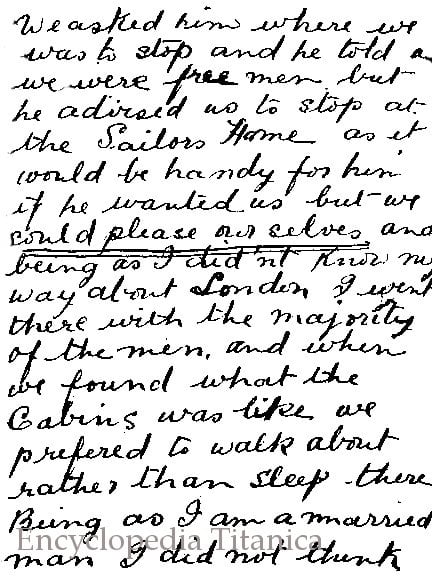 We asked him where we
was to stop and he told
we were free men but
he advised us to stop at
the Sailors Home as it
would be handy for him
if he wanted us but we
could please our selves and
being as I did'nt know
way about London I went
there with the majority
of the men, and when
we found what the
Cabins was like we
prefered to walk about
rather than sleep there
Being as I am a married
man I did not think
Encyclopedia Titanica